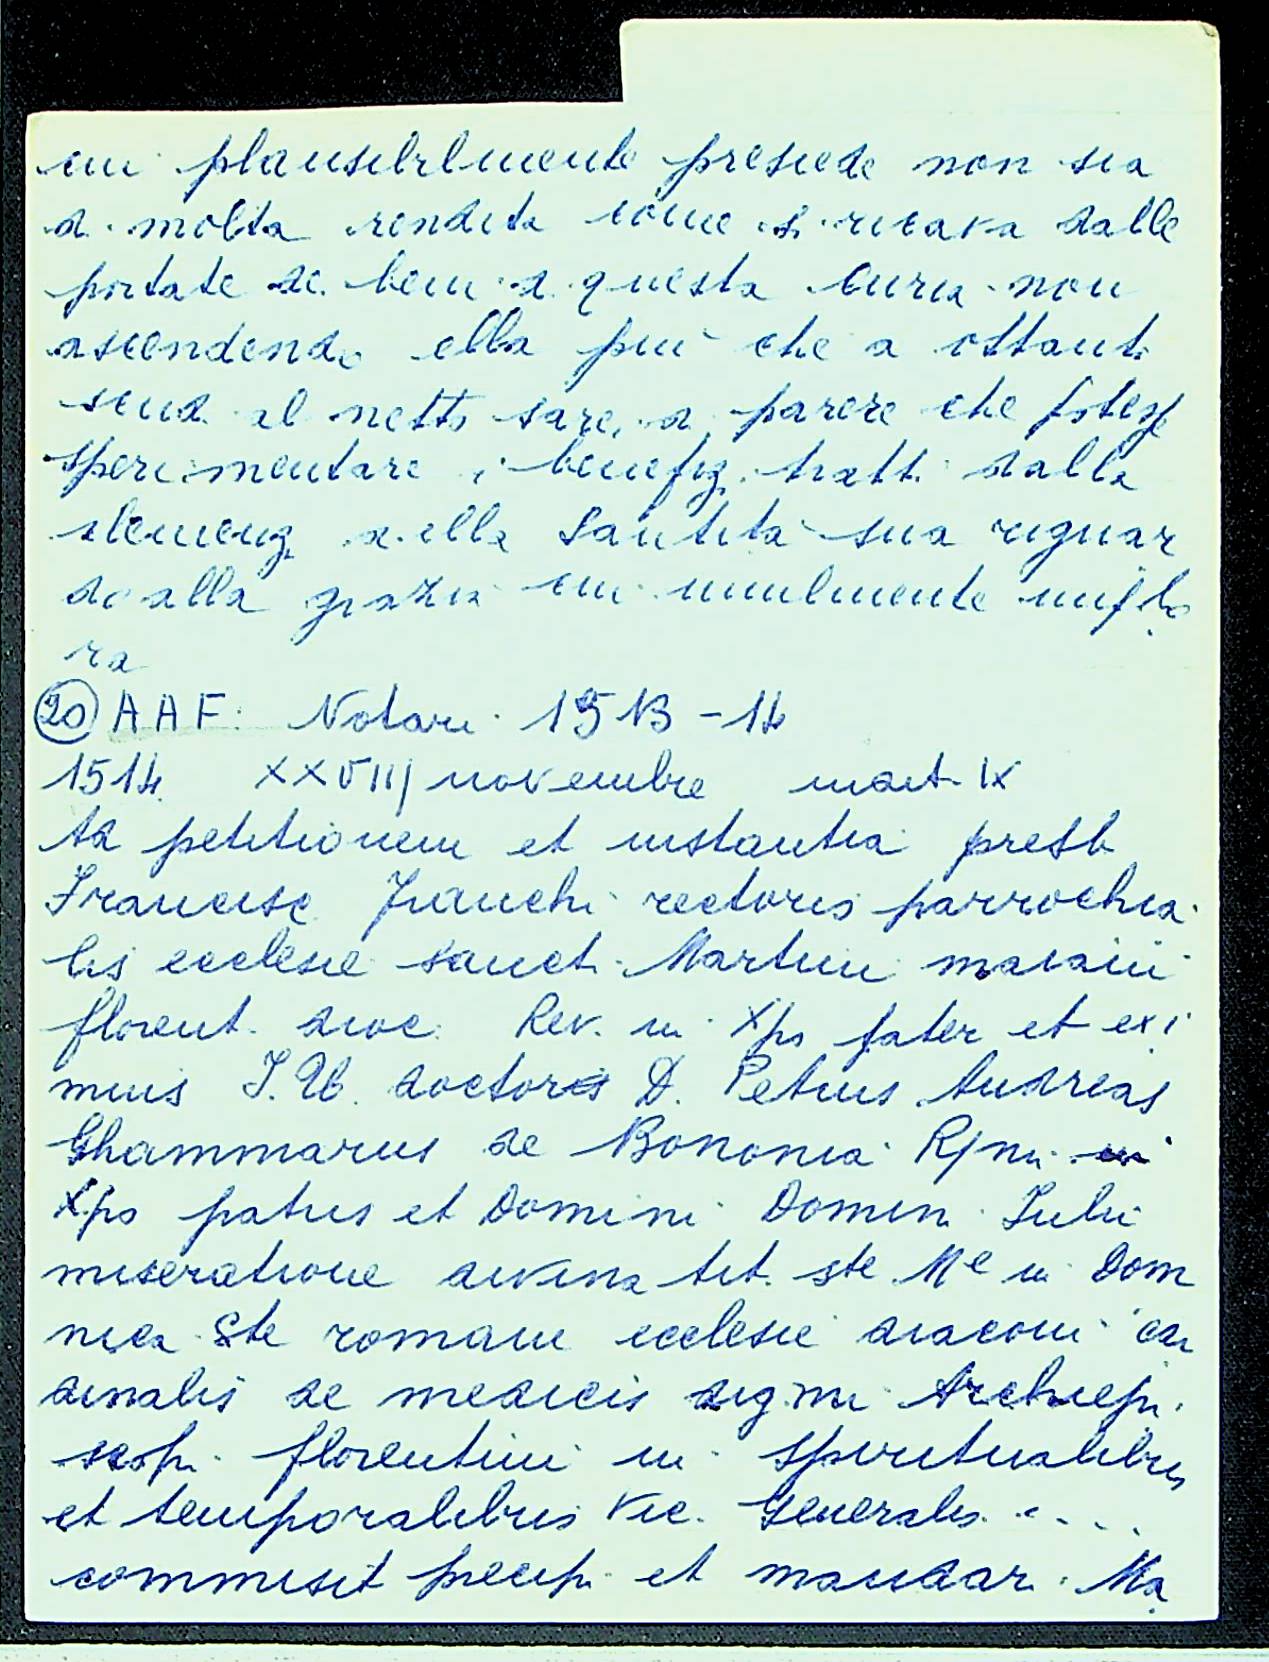 cui plausibilmente presiede non sia
di molta rendita come si ricava dalle
portate de beni di questa Curia non
ascendendo ella più che a ottanta
scudi al netto sarei di parere che potesse
sperimentare i benefizi tratti dalla
clemenza della Santità sua riguar
do alla grazia cui umilmente implo
ra
20 AAF. Notari 1513-14
1514 XXVIIII novembre mart. IX
Ad petitionem et instantia presb
Francisci Franchi rectoris parrochia
lis ecclesie sancti Martini
florent. dioc. Rev. in Xpo pater et exi
mius I.U. doctor D. Petrus Andreas
Ghammarus de Bononia R/mi in
Xpo patris et Domini Domini Iulii
miseratione divina tit. ste Me in Dom
nica Ste romane ecclesie diaconi car
dinalis de medicis dig.mi Archiepi
scopi florentini in spiritualibus
et temporalibus Vic. Generalis ....
commisit precip. et mandar. Ma